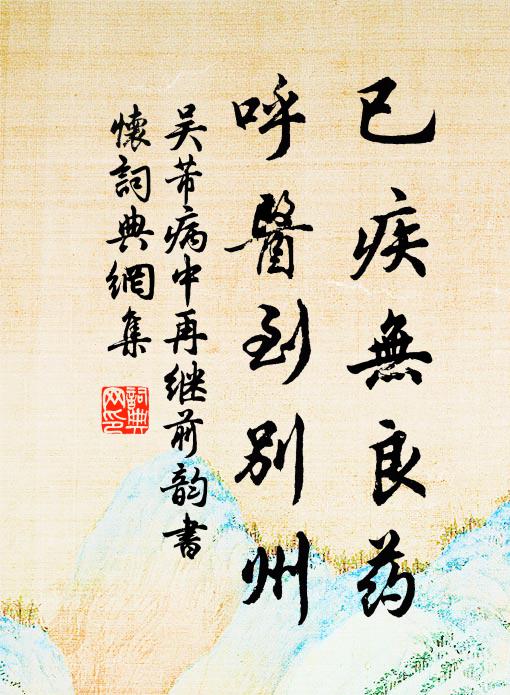 已疾無良药
呼醫到别州
吴芾病中再继前韵書
懷詞典網集
詞典
网印